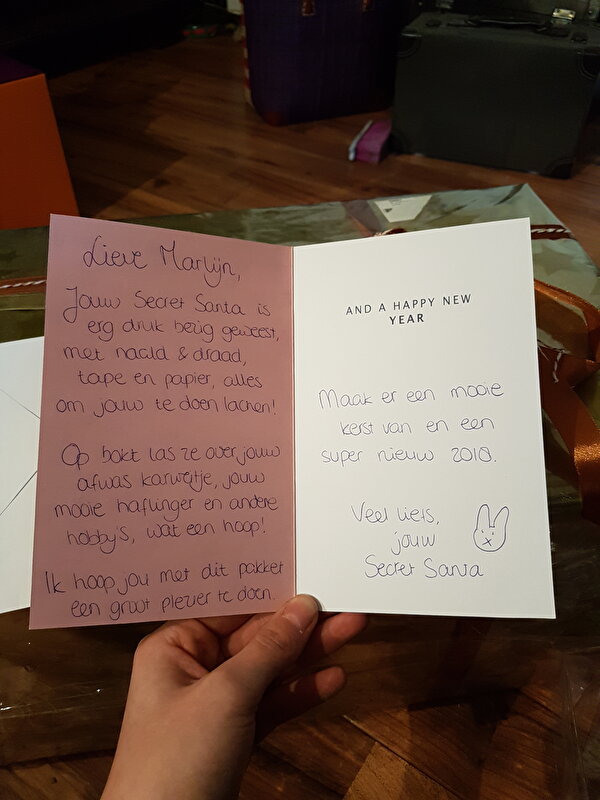 Lieve Marlijn,
Jouw Secret Santa is
erg druk bezig geweest,
met naald & draad,
tape en papier, alles
om jouw te doen lachen!
Op bokt las ze over jouw
afwas karweitje, jouw
mooie haflinger en andere
hobby's, wat een hoop!
Ik hoop jou met dit pakket
een groot plezier te doen.
AND A HAPPY NEW
YEAR
Maak er een mooie
kerst van en een
super nieuw 2018.
Veel liefs,
jouw
Secret Santa